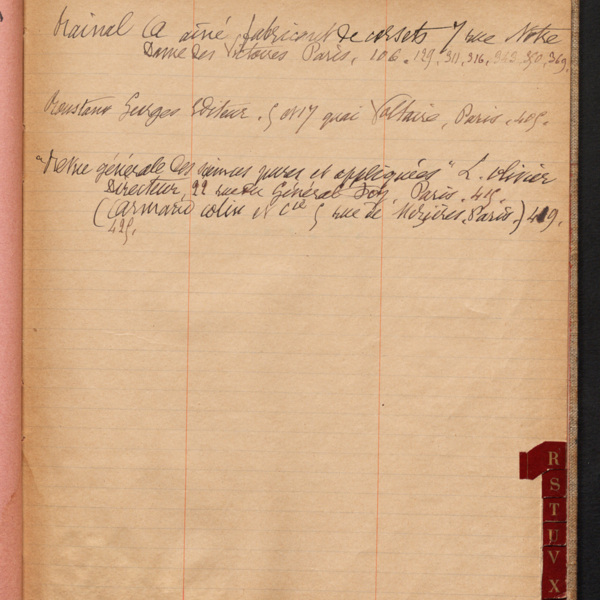 Rainal (A aîné fabricant de corsets 7 rue Notre
Dame des Victoires Paris. 106. 129. 311, 316, 350, 369.
Georges Editeur. 5 et 17 quai Voltaire, Paris. 405.
"Revue générale des sciences pures et appliquées" L. Olivier
Directeur 22 rue du Général Foy. Paris. 415.
(Armand Colin et Cie 5 rue de Mézières. Paris.) 419.
425.
R
S
T
U
V
X